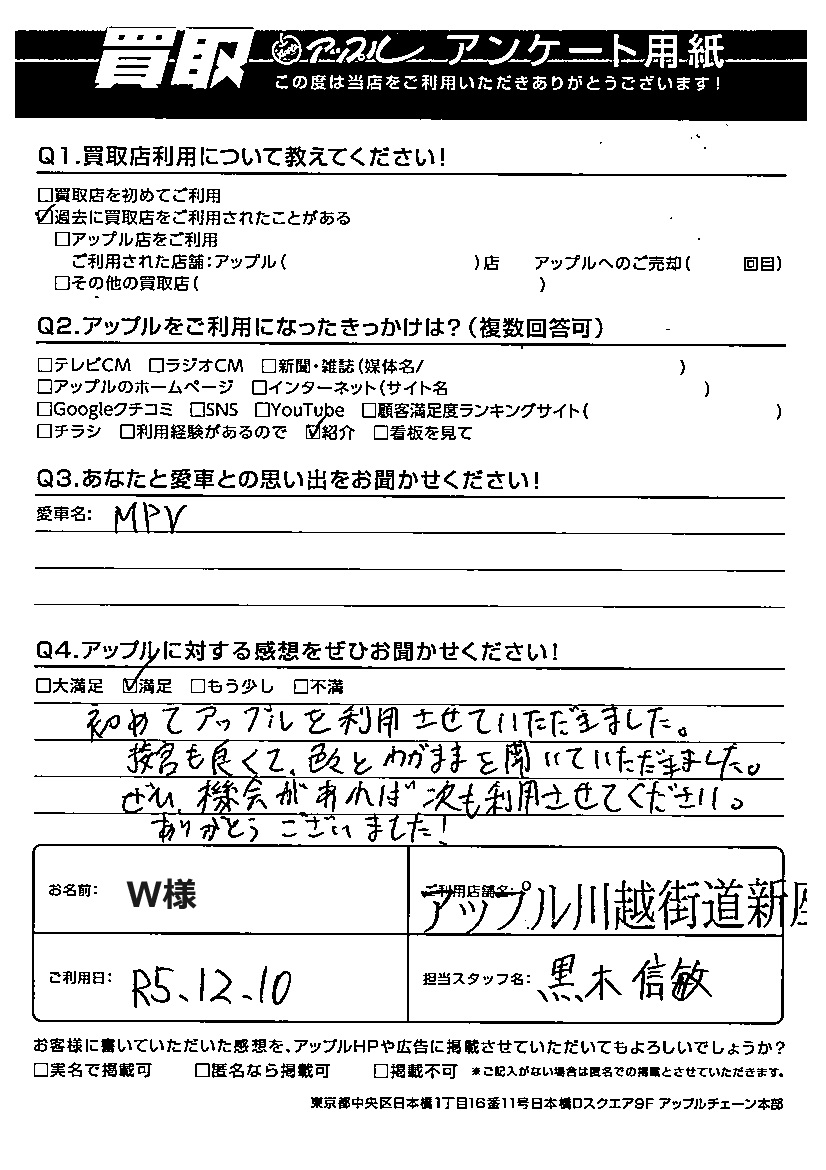 買取 アップル アンケート用紙
この度は当店をご利用いただきありがとうございます!
Q1.買取店利用について教えてください!
□買取店を初めてご利用
☑過去に買取店をご利用されたことがある
□アップル店をご利用
ご利用された店舗:アップル( )店 アップルへのご売却( 回目)
□その他の買取店( )
Q2.アップルをご利用になったきっかけは?(複数回答可)
□テレビCM □ラジオCM □新聞・雑誌(媒体名/ )
□アップルのホームページ □インターネット(サイト名 )
□Googleクチコミ □SNS □YouTube □顧客満足度ランキングサイト( )
□チラシ □利用経験があるので ☑紹介 □看板を見て
Q3.あなたと愛車との思い出をお聞かせください!
愛車名: MPV
Q4.アップルに対する感想をぜひお聞かせください!
□大満足 ☑満足 □もう少し □不満
初めてアップルを利用させていただきました。
接客も良くて、色々とわがままを聞いていただきました。
ぜひ、機会があれば次も利用させてください。
ありがとうございました!
お名前: W様
ご利用店舗名: アップル川越街道新座
ご利用日: R5.12.10
担当スタッフ名: 黒木 信敏
お客様に書いていただいた感想を、アップルHPや広告に掲載させていただいてもよろしいでしょうか?
□実名で掲載可 □匿名なら掲載可 □掲載不可 ※ご記入がない場合は匿名での掲載とさせていただきます。
東京都中央区日本橋1丁目16番11号日本橋ロスクエア9F アップルチェーン本部